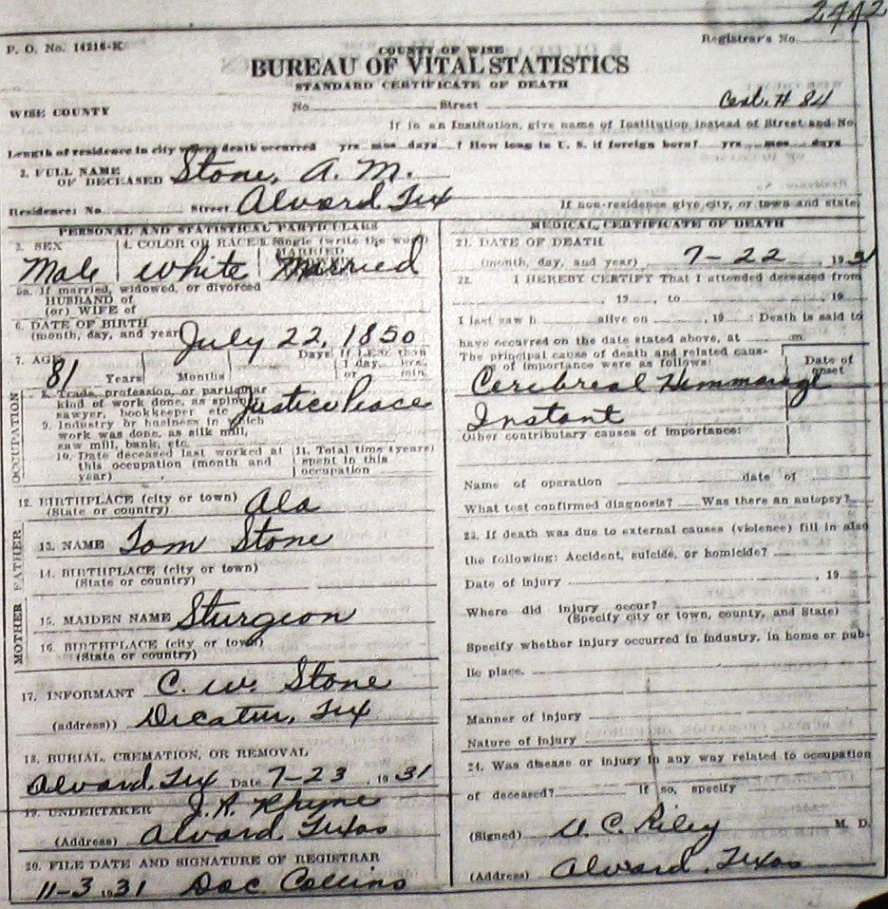 2442
P. O. No. 14216-K
Registrar's No.
COUNTY OF WISE
BUREAU OF VITAL STATISTICS
STANDARD CERTIFICATE OF DEATH
WISE COUNTY
No Street Cert. # 84
If in an Institution, give name of Institution instead of Street and No.
Length of residence in city where death occurred yrs mos days ? How long in U. S. if foreign born? yrs mos days
2. FULL NAME OF DECEASED Stone, A. M.
Residence: No. Street Alvard Tex If non-residence give city, or town and state
PERSONAL AND STATISTICAL PARTICULARS
3. SEX Male
4. COLOR OR RACE White
Single (write the word)
MARRIED
Married
5a. If married, widowed, or divorced
HUSBAND of
(or) WIFE of
6. DATE OF BIRTH
(month, day, and year) July 22, 1850
7. AGE 81 Years Months Days If LESS than 1 day, hrs. or min.
8. Trade, profession, or particular
kind of work done, as spinner,
sawyer, bookkeeper etc Justice Peace
9. Industry or business in which
work was done, as silk mill,
saw mill, bank, etc.
10. Date deceased last worked at
this occupation (month and
year)
11. Total time (years)
spent in this
occupation
OCCUPATION
12. BIRTHPLACE (city or town)
(State or country) Ala
FATHER
13. NAME Tom Stone
14. BIRTHPLACE (city or town)
(State or country)
MOTHER
15. MAIDEN NAME Sturgeon
16. BIRTHPLACE (city or town)
(State or country)
17. INFORMANT C. W. Stone
(address)) Dicatur, Tex
18. BURIAL, CREMATION, OR REMOVAL
Alvard, Tex Date 7-23, 1931
19. UNDERTAKER J. A. Rhyne
(Address) Alvard, Texas
20. FILE DATE AND SIGNATURE OF REGISTRAR
11-3 1931 Doc. Collins
MEDICAL CERTIFICATE OF DEATH
21. DATE OF DEATH
(month, day, and year) 7-22 1931
22. I HEREBY CERTIFY That I attended deceased from
, 19 , to , 19
I last saw h alive on , 19 : Death is said to
have occurred on the date stated above, at m.
The principal cause of death and related causes
of importance were as follows:
Date of onset
Cerebreal Hemmorage
Instant
Other contributary causes of importance:
Name of operation date of
What test confirmed diagnosis? Was there an autopsy?
23. If death was due to external causes (violence) fill in also
the following: Accident, suicide, or homicide?
Date of injury , 19
Where did injury occur?
(Specify city or town, county, and State)
Specify whether injury occurred in industry, in home or pub-
lic place.
Manner of injury
Nature of injury
24. Was disease or injury in any way related to occupation
of deceased? If so, specify
(Signed) U. C. Riley M. D.
(Address) Alvard, Texas